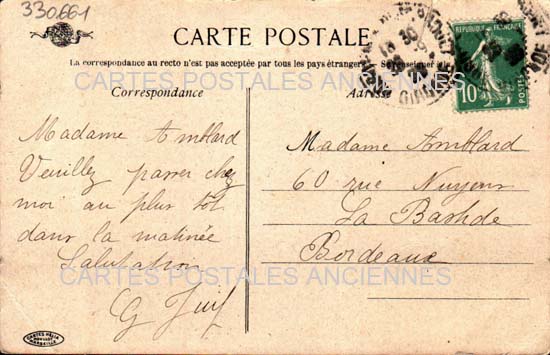 330.661
CARTE POSTALE
La correspondance au recto n'est pas acceptée par tous les pays étrangers
Correspondance
Adresse
REPUBLIQUE FRANÇAISE
10
POSTES
CARTES POSTALES ANCIENNES
Madame Amblard
Veuillez passer chez
moi au plus tôt
dans la matinée
Salutation
Madame Amblard
60 rue Nuyens
La Bastide
Bordeaux
CARTES POSTALES ANCIENNES